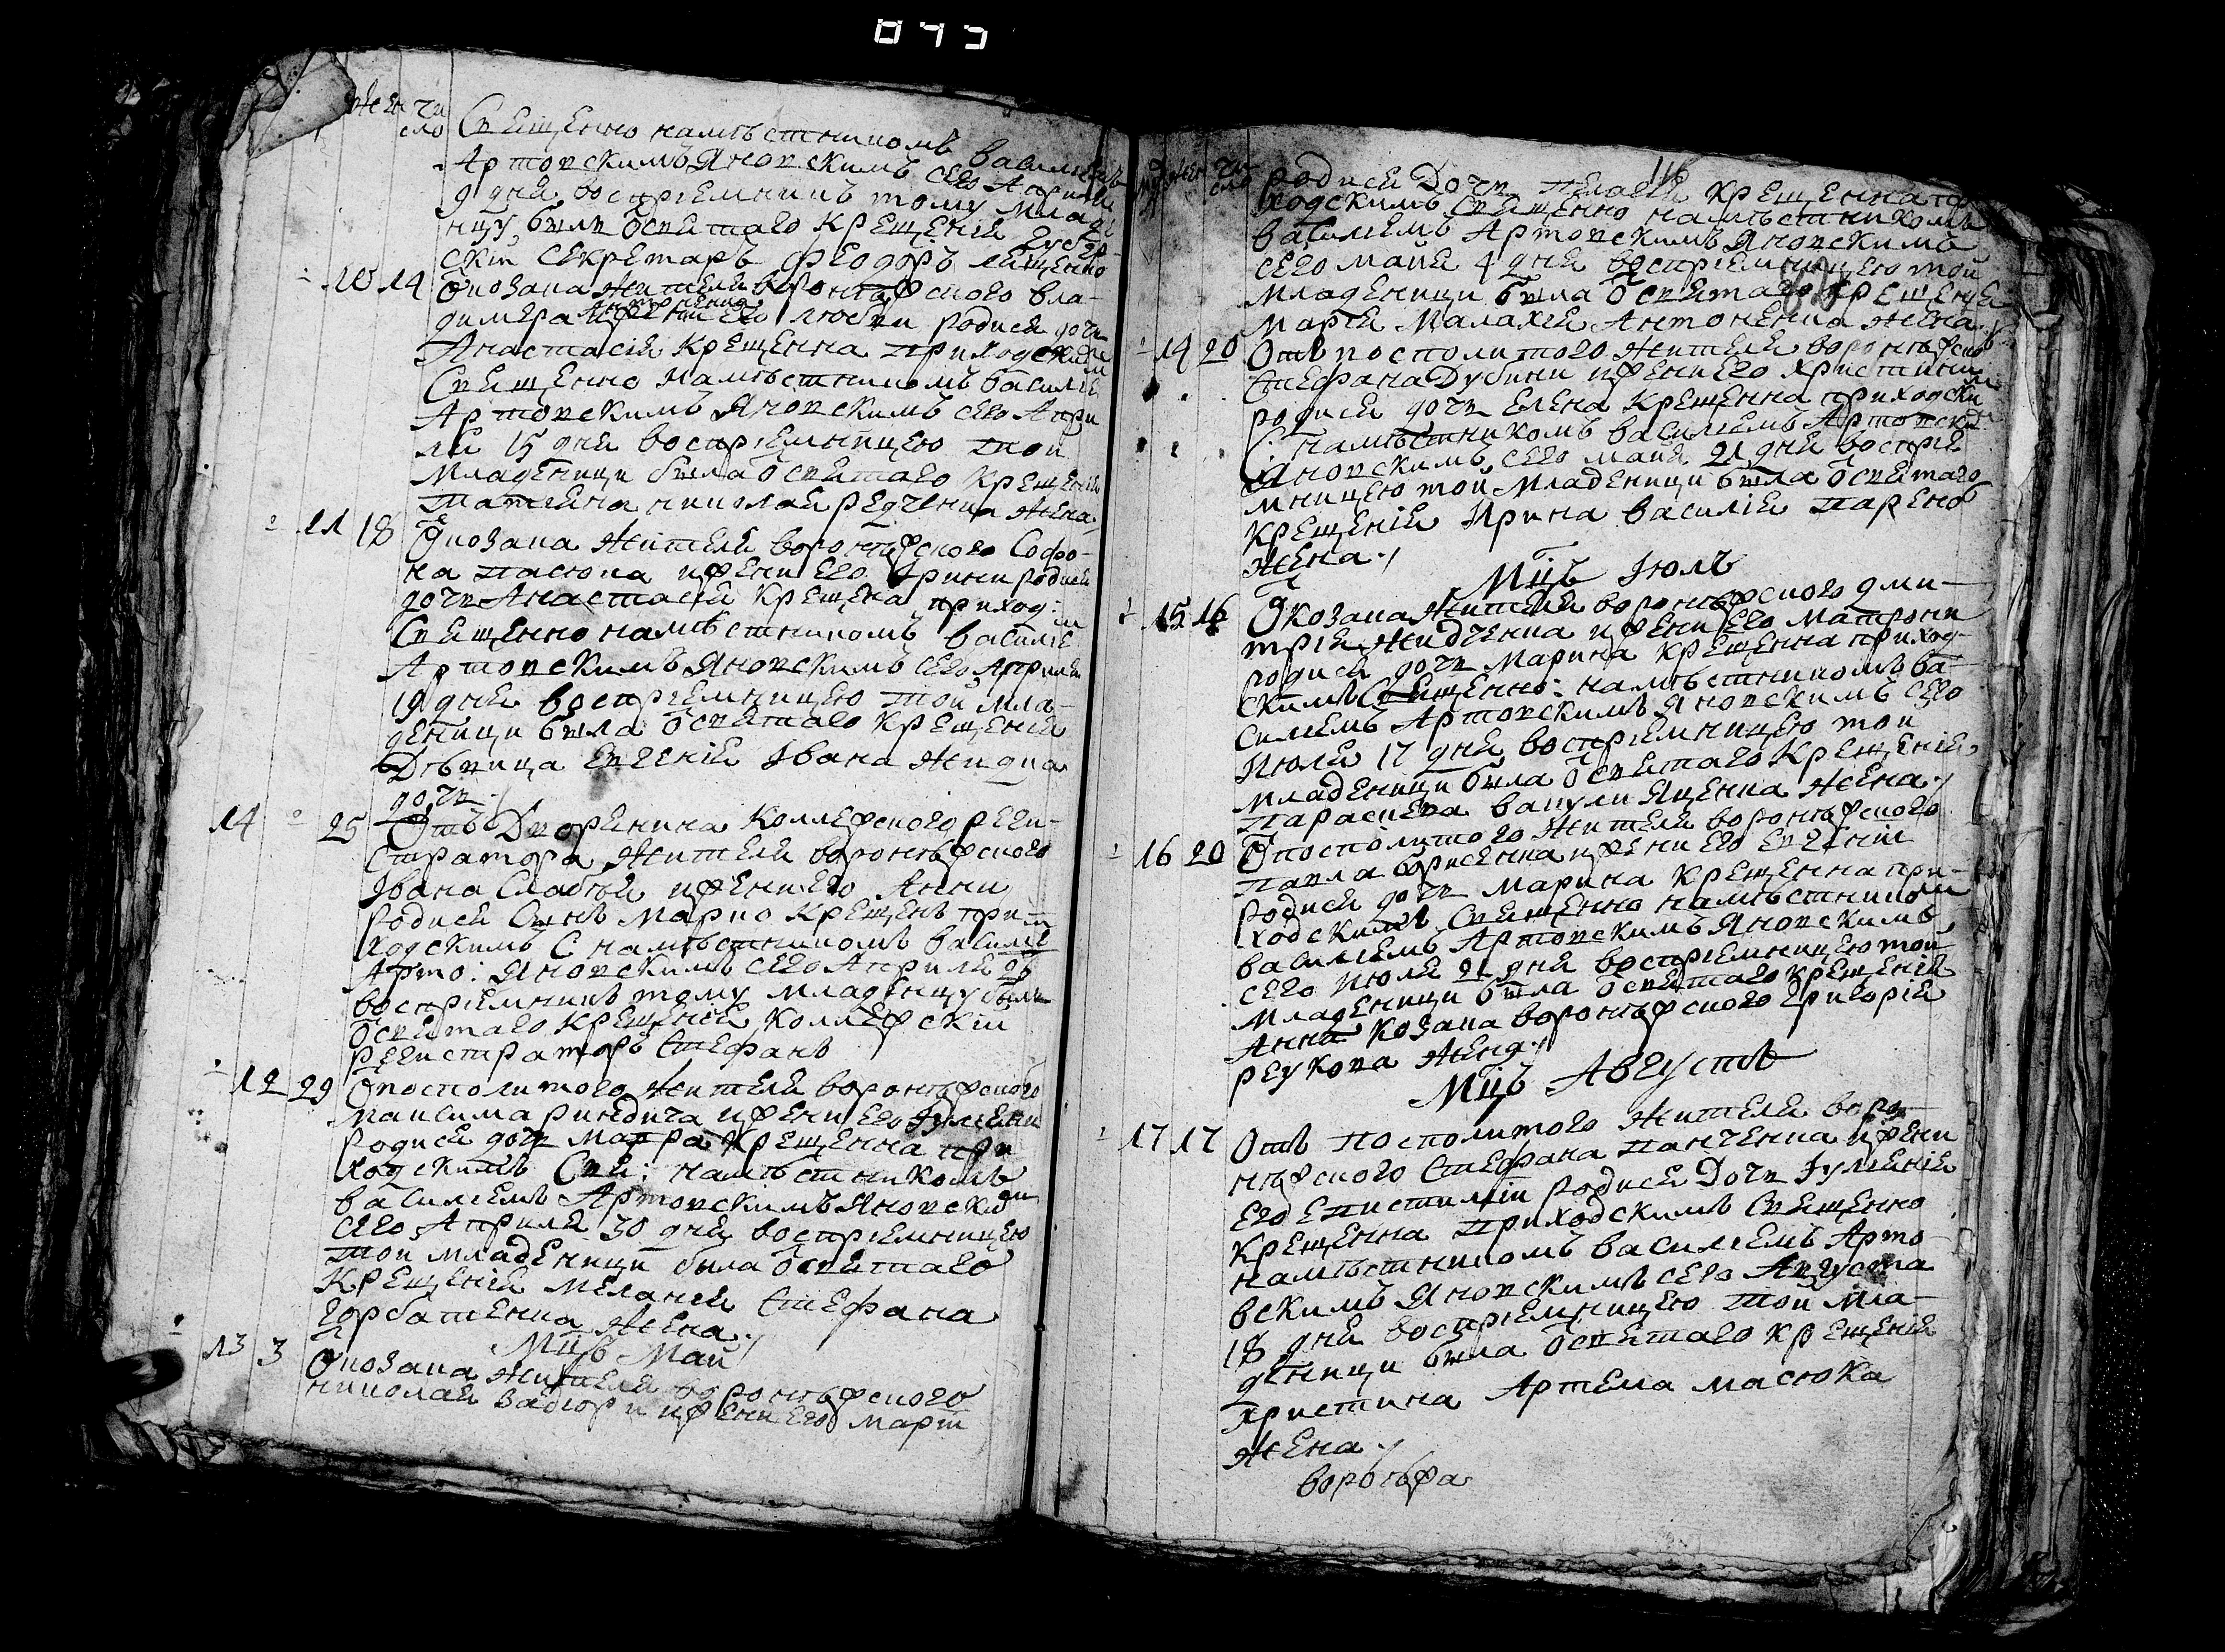 Жен чи
сло
Священно намѣстникомъ василиемъ
Артовскимъ Яновскимъ сего Априля
9 дня воспрiемникъ тому младе
нцу былъ Ѿ святаго крещенiя
скiй секретаръ Феодоръ
10 14 Ѿ козака жителя воронѣжского вла-
димера и жени его любви родися дочь
Анастасiя крещенна приходскимъ
Священно намѣстникомъ василiе
Артовскимъ Яновскимъ сего Апри
ля 15 дня воспрiемницею той
младеници была Ѿ святаго крещенiя
татiяна николая редченка жена
11 18 Ѿ козака жителя воронѣжского Софро-
на пасюка и жени его Ирини родися
дочь Анастасiя крещена приход:
Священно намѣстникомъ василiе
Артовскимъ Яновскимъ сего Априля
19 дня воспрiемницею той мла-
деници была Ѿ святаго крещенiя
Дѣвица Евгенiя Iвана жидка
дочь
14 25 Отъ Дворянина Коллежского реги-
стратора жителя воронѣжского
Iвана Слабтѣя и жени его Анни
родися Сынъ Марко крещенъ при-
ходскимъ С намѣстникомъ василiе
Арто: Яновскимъ сего Априля 26
воспрiемникъ тому младенцу былъ
Ѿ святаго крещенiя коллежскiй
регистраторъ Стефанъ
12 29 Ѿ посполитого жителя воронѣжского
максима риндича и жени его Iулiянiи
родися дочь Мавра крещенна при
ходскимъ Свя: намѣстникомъ
василiемъ Артовскимъ Яновским
сего Априля 30 дня воспрiемницею
той младеници была Ѿ святаго
крещенiя меланiя Стефана
горбатенка жена
Мцъ Май
13 3 Ѿ козака жителя воронѣжского
николая забiори и жени его марiи
116
Жен чи
сло
родися Дочь пелагiя крещенна пр
ходскимъ Священно намѣстникомъ
василiемъ Артовскимъ Яновскимъ
сего майя 4 дня воспрiемницею той
младеници была Ѿ святаго крещенiя
марiя Малахiя Антоненка жена
14 20 Отъ посполитого жителя воронѣжско
Стефана Дубини и жени его христини
родися дочь Елена крещенна приходски
С: намѣстникомъ василiемъ Артовски
Яновскимъ сего майя 21 дня воспрiе
мницею той младеници была Ѿ святаго
крещенiя Ирина василiя
жена
Мцъ Iюль
15 16 Ѿ козака жителя воронѣжского дми-
трiя жидченка и жени его матрони
родися дочь Марина крещенна приход-
скимъ Священно: намѣстникомъ ва-
силiемъ Артовскимъ Яновскимъ сего
Июля 17 дня воспрiемницею той
младеници была Ѿ святаго крещенiя
параскева вакули Яценка жена
16 20 Ѿ посполитого жителя воронѣжского
павла борисенка и жени его Евгенiи
родися дочь марина крещенна при-
ходскимъ Священно намѣстником
василiемъ Артовскимъ Яновскимъ
сего Июля 21 дня воспрiемницею той
младеници была Ѿ святаго крещенiя
Анна козака воронѣжского Григорiя
реукова жена
Мцъ Августъ
17 17 Отъ посполитого жителя воро-
нѣжского Стефана панченка и жени
его Епистимiи родися Дочь Iулiянiя
крещенна приходскимъ Священно
намѣстникомъ василiемъ Арто-
вскимъ Яновскимъ сего Августа
18 дня воспрiемницею той мла-
деници была Ѿ святаго крещенiя
христина Артема масюка
жена